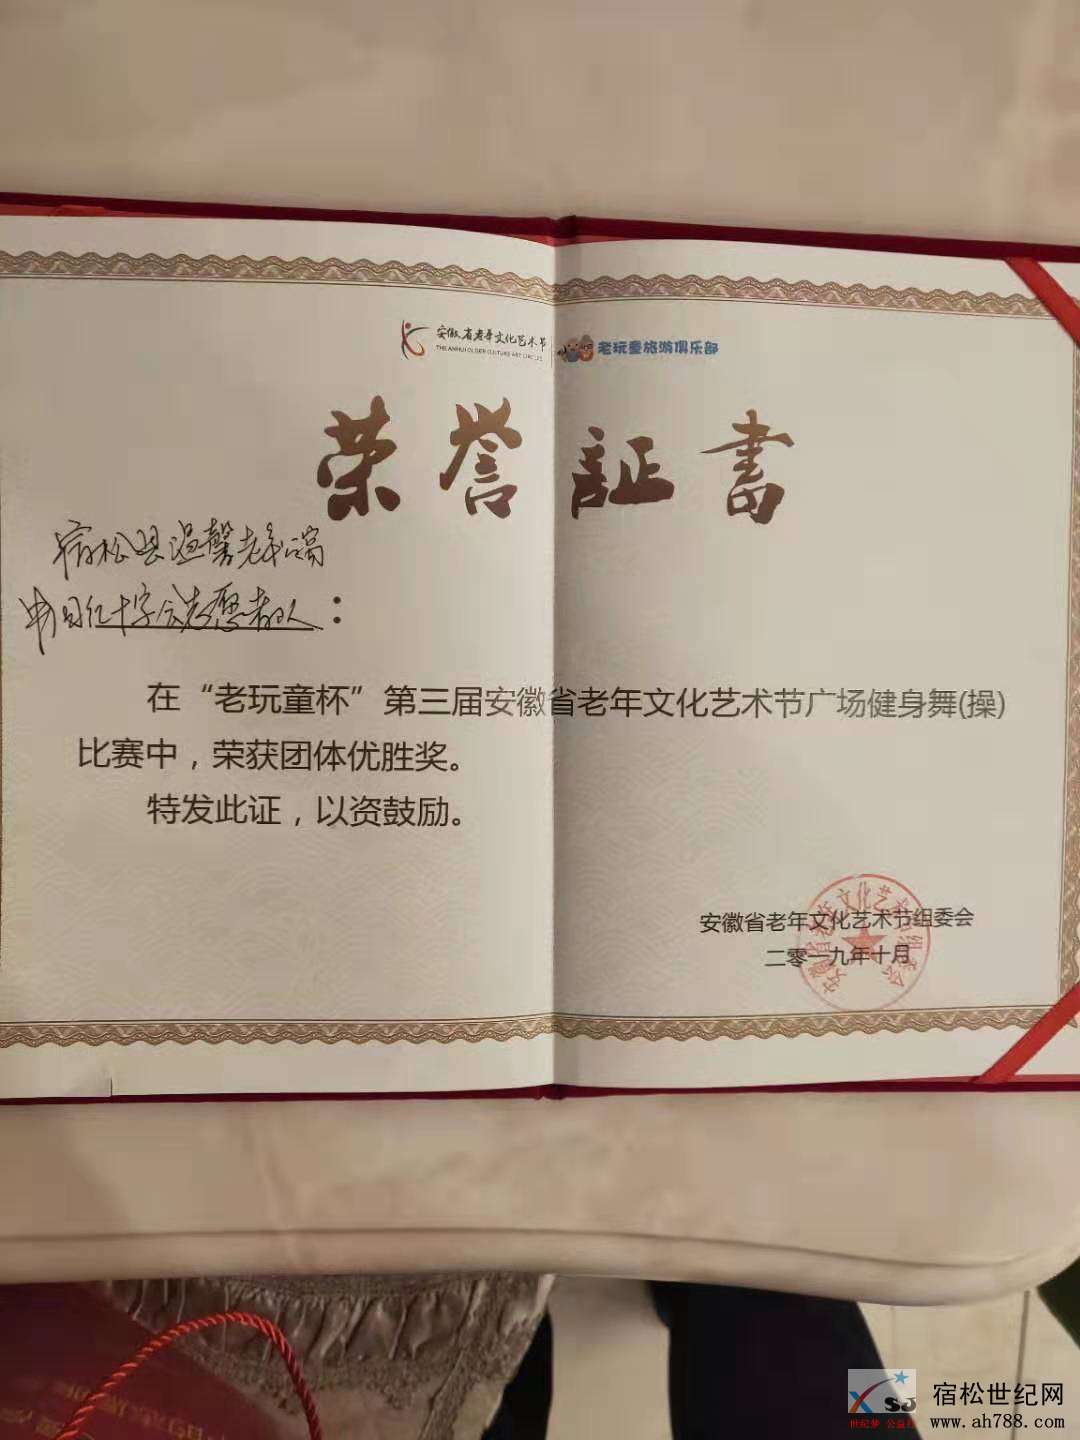 安徽省老年文化艺术节
THE ANHUI OLDER CULTURE ART CIRCLES
老玩童旅游俱乐部
荣誉証書
宿松县温馨老年公寓
中国红十字会志愿者
：
在“老玩童杯”第三届安徽省老年文化艺术节广场健身舞(操)
比赛中，荣获团体优胜奖。
特发此证，以资鼓励。
安徽省老年文化艺术节组委会
二零一九年十月
安徽省老年文化艺术节组委会
XSJ
世纪梦 公益
宿松世纪网
www.ah788.com